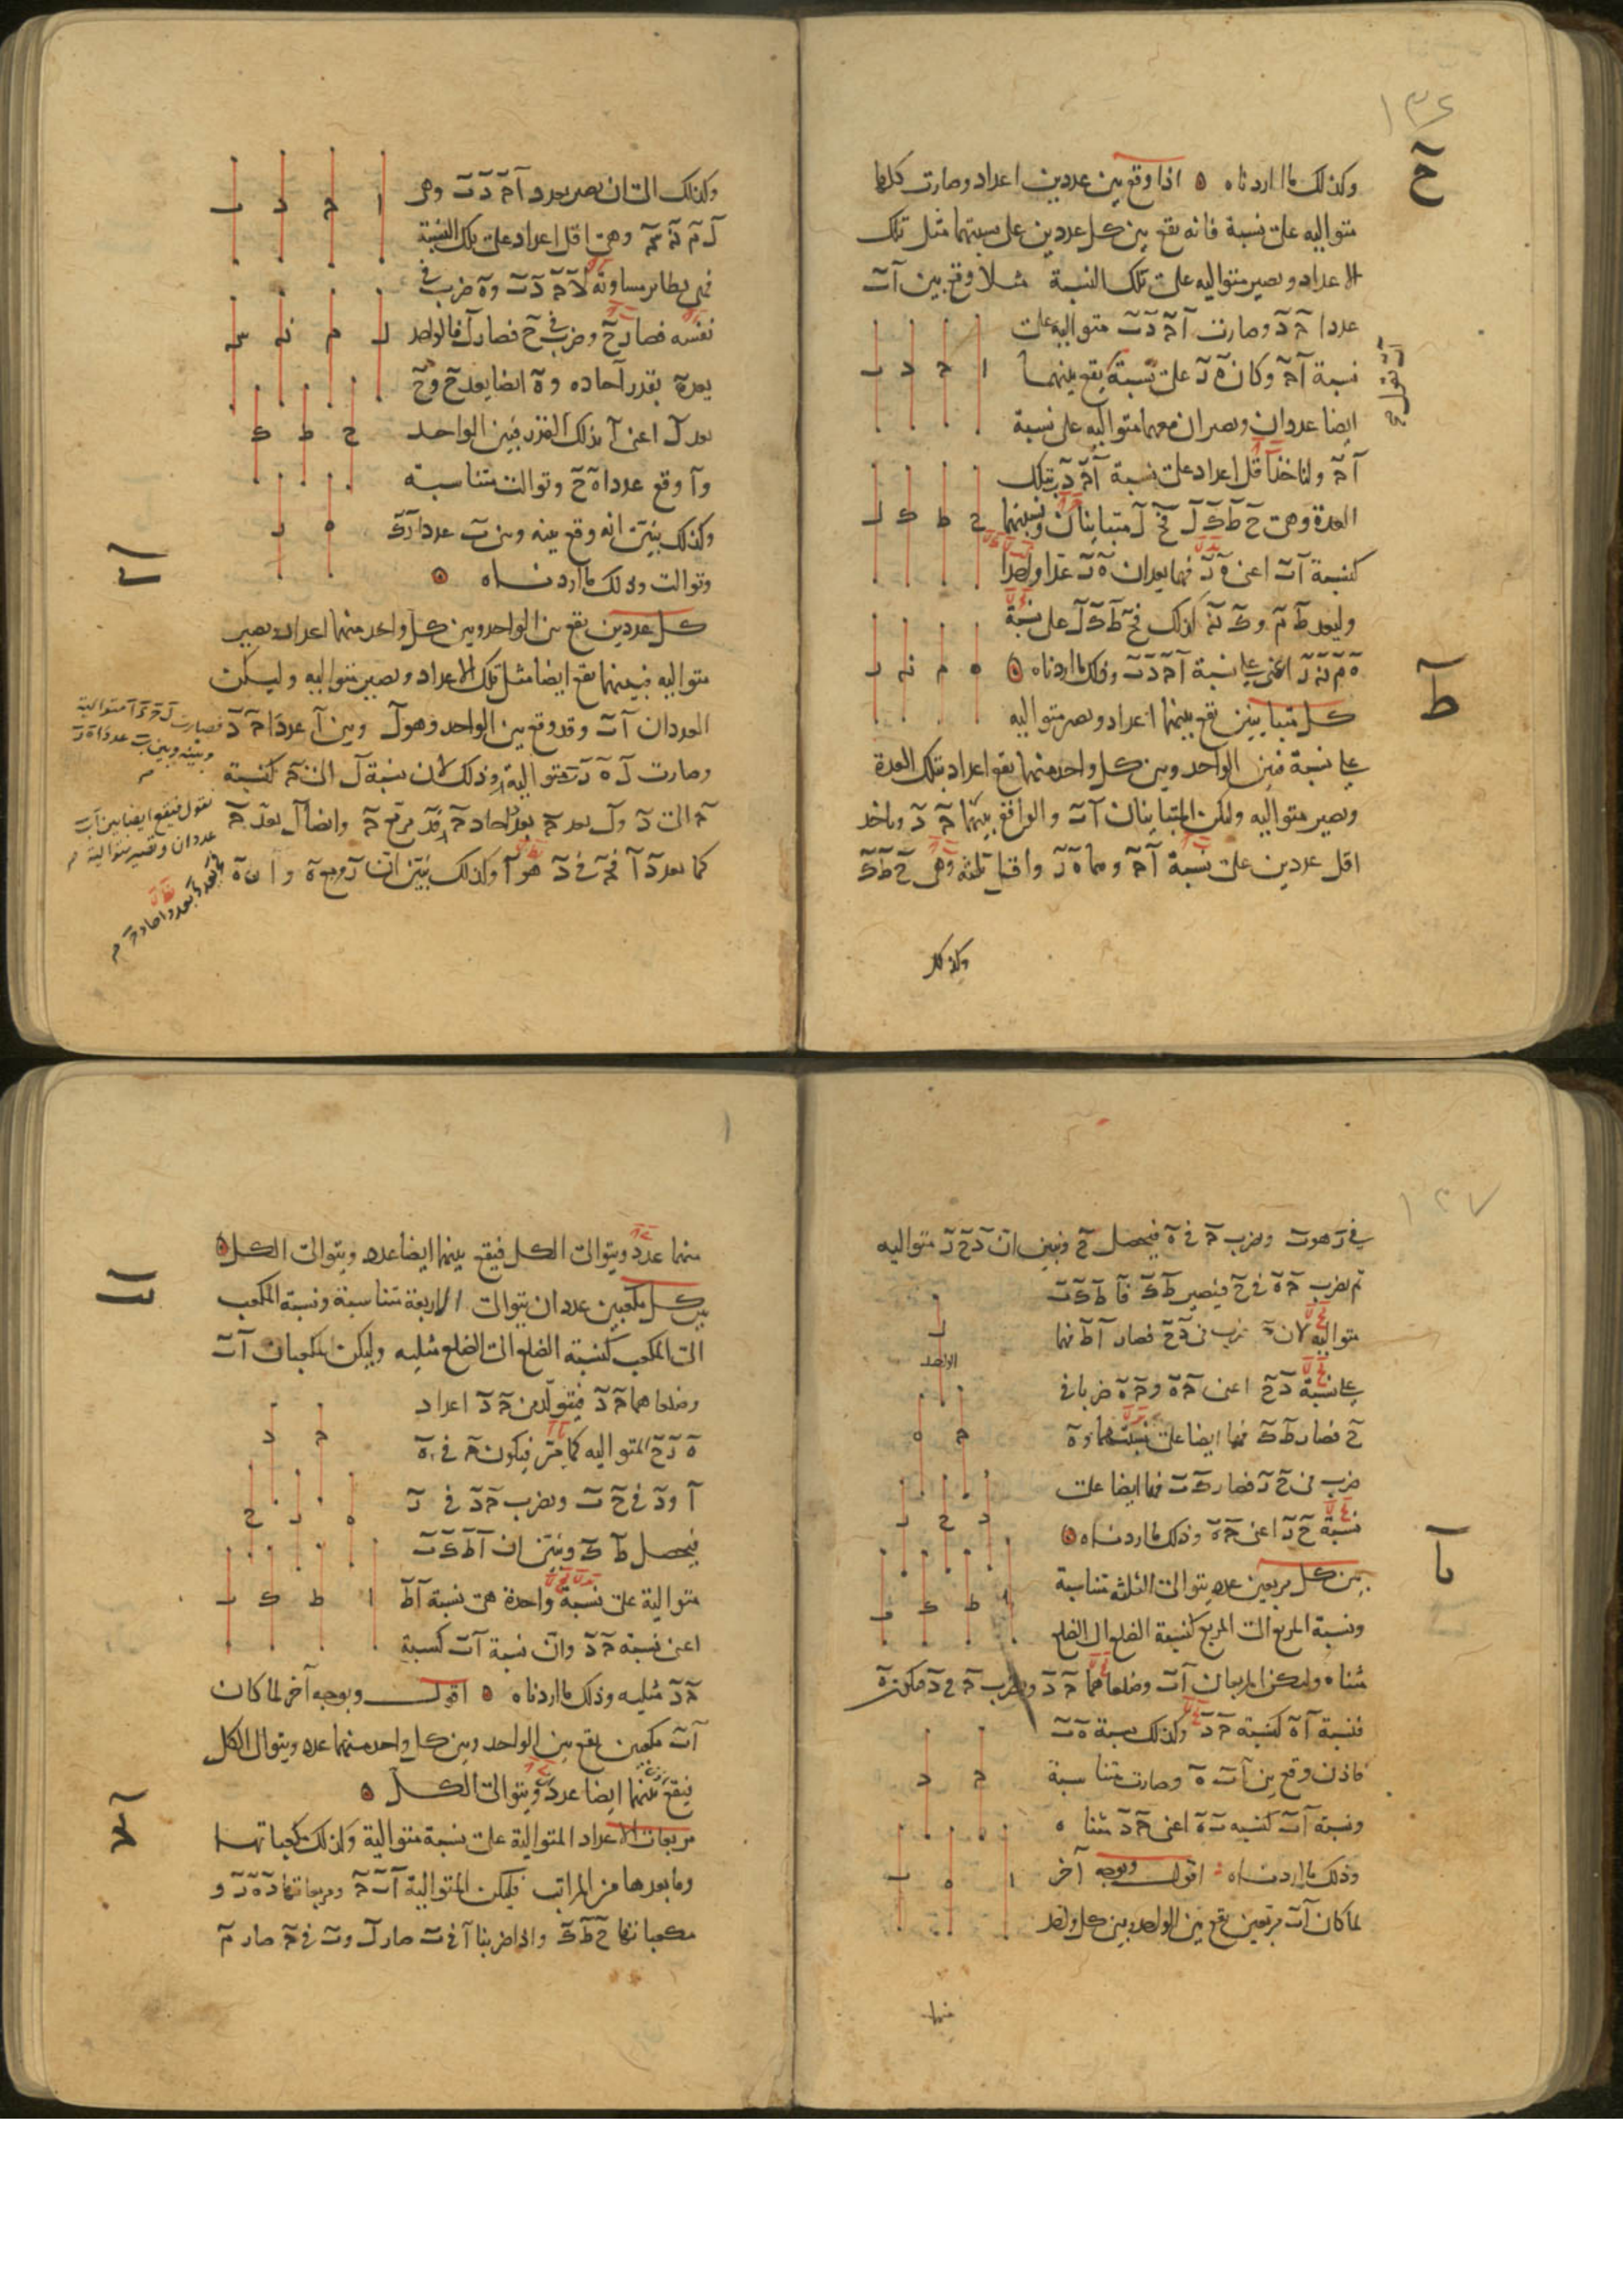 ١٣٦
ح
وكذلك ما اردناه ه اذا وقع بين عددين اعداد وصارت كلها
متواليه على نسبة فانه يقع بين كل عددين على نسبتهما مثل تلك
الاعداد ويصير متواليه على تلك النسبة مثلا وقع بين آ ب
عددا ج د وصارت آ ج د ب متواليه على
نسبة آ ج وكان ه ز على نسبة يقع بينهما
ايضا عددان ويصيران معهما متواليه على نسبة
آ ج ولناخذ اقل اعداد على نسبة آ ج د ب بتلك
العدة وهى ح ط ك ل فح ل متباينان ونسبتهما
كنسبة آ ب اعنى ه ز فهما يعدان ه ز عدا واحدا
وليعد ط م و ك ن كذلك فح ط ك ل على نسبة
ه م ن ز اعنى على نسبة آ ج د ب وذلك ما اردناه
ط
كل متباينين يقع بينهما اعداد ويصير متواليه
على نسبة فبين الواحد وبين كل واحد منهما يقع اعداد بتلك العدة
ويصير متواليه وليكن المتباينان آ ب والواقع بينهما ج د وناخذ
اقل عددين على نسبة آ ج وهما ه ز واقل ثلثة وهى ح ط ك
وكذلك
وكذلك الى ان يصير بعدد آ ج د ب وهى
ل م ن س وهى اقل اعداد على تلك النسبة
فهى نظائر مساوية لا ج د ب و ه ضرب فى
نفسه فصار ح وضرب فى ح فصار ل فالواحد
يعد ه بقدر آحاده و ه ايضا يعد ح و ح
يعد ل اعنى آ بذلك القدر فبين الواحد
و آ وقع عددا ه ح وتوالت متناسبة
وكذلك يتبين انه وقع بينه وبين ب عددا ز ك
وتوالت وذلك ما اردناه
كل عددين يقع بين الواحد وبين كل واحد منهما اعداد ويصير
متواليه فبينهما يقع ايضا مثل تلك الاعداد ويصير متواليه وليكن
العددان آ ب وقد وقع بين الواحد وهو ل وبين آ عددا ج د
وصارت ل ه ز ب متوالية وذلك لان نسبة ل الى ج كنسبة
ج الى د و ل يعد ج بعدد احاد ج فد مربع ج وايضا ل يعد ج
كما يعد د آ فج فى د هو آ وكذلك يتبين ان ز مربع ه وان ه
فصارت ل ج د آ متوالية
وبينه وبين ب عددا ه ز
نقول فيقع ايضا بين آ ب
عددان وتصير متوالية
١٣٧
فى ز هو ب ونضرب ج فى ه فيحصل ح ونبين ان د ح ز متواليه
ثم نضرب ج ه فى ح فيصير ط ك فآ ط ك ب
متواليه لان ج ضرب فى د ح فصار آ ط فهما
على نسبة د ح اعنى ج ه و ج ه ضربا فى
ح فصار ط ك فهما ايضا على نسبتهما و ه
ضرب فى ح ز فصار ك ب فهما ايضا على
نسبة ح ز اعنى ج ه وذلك ما اردناه
الواحد
يا
بين كل مربعين عدد يتوالى الثلثه متناسبة
ونسبة المربع الى المربع كنسبة الضلع الى الضلع
مثناه وليكن المربعان آ ب وضلعاهما ج د ونضرب ج فى د فيكون ه
فنسبة آ ه كنسبة ج د وكذلك نسبة ه ب
فاذن وقع بين آ ب ه وصارت متناسبة
ونسبة آ ب كنسبة ب ه اعنى ج د مثناه
وذلك ما اردناه اقول وبوجه آخر
لما كان آ ب مربعين يقع بين الواحد وبين كل واحد
منهما
منهما عدد ويتوالى الكل فيقع بينهما ايضا عدد ويتوالى الكل
يب
بين كل مكعبين عددان يتوالى الاربعة متناسبة ونسبة المكعب
الى المكعب كنسبة الضلع الى الضلع مثلثه وليكن المكعبان آ ب
وضلعاهما ج د فيتولد من ج د اعداد
ه ز ح المتواليه كما مر فيكون ج فى ه
آ و د فى ح ب ونضرب ج د فى ز
فيحصل ط ك ونبين ان آ ط ك ب
متوالية على نسبة واحدة هى نسبة آ ط
اعنى نسبة ج د وان نسبة آ ب كنسبة
ج د مثلثه وذلك ما اردناه ه اقول وبوجه آخر لما كان
آ ب مكعبين يقع بين الواحد وبين كل واحد منهما عدد ويتوالى الكل
فيقع بينهما ايضا عدد ويتوالى الكل
يج
مربعات الاعداد المتوالية على نسبة متوالية وكذلك مكعباتها
وما بعدها من المراتب فليكن المتوالية آ ب ج ومربعاتها د ه ز و
مكعباتها ح ط ك واذا ضربنا آ فى ب صار ل و ب فى ج صار م